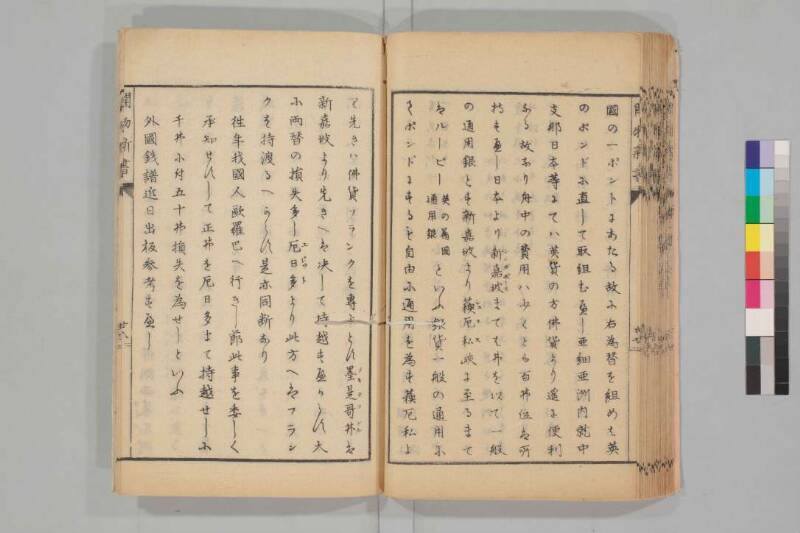 國の一ポンドにあたる故に右為替を組めも英
のポンドに直して取組むべし亜細亜洲内就中
支那日本等にてハ英貨の方佛貨より遙に便利
なる故なり舟中の費用ハ少くとも百弗位は所
持すべし日本より新嘉坡まても弗を以て一般
の通用銀とす新嘉坡より蘓厄私峡に至るまて
はルーピー
英の属國
通用銀
といふ銀貨一般の通用に
てポンドにするも自由に通用を為す蘓厄私よ
り先きハ佛貨フランクを専とし墨是哥弗は
新嘉坡より先きへは决して持越すべからす大
に両替の損失多し厄日多より此方へはフラン
クを持渡るへからす是亦同断なり
往年我國人歐羅巴へ行きし節此事を委しく
承知せすして正弗を厄日多まて持越せしに
千弗に付五十弗損失を為せしといふ
外國銭譜近日出板参考すべし